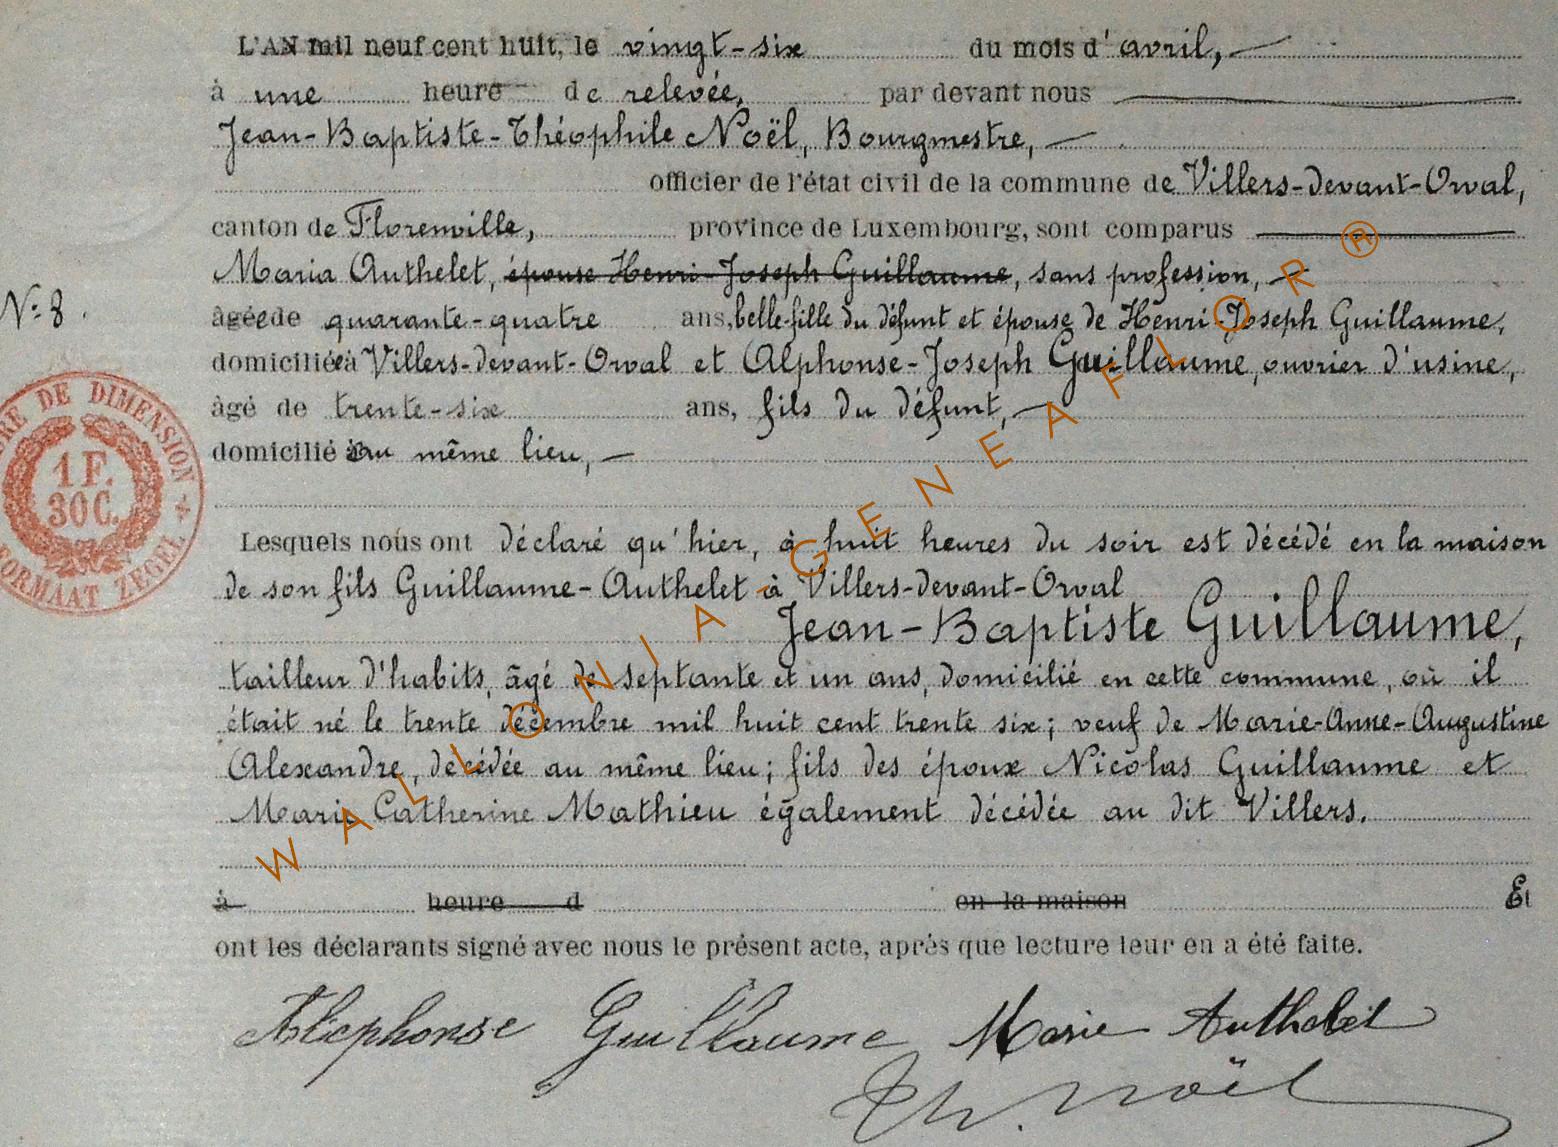 L'AN mil neuf cent huit, le vingt-six du mois d'avril,
à une heure de relevée, par devant nous
Jean-Baptiste-Théophile Noël, Bourgmestre,
officier de l'état civil de la commune de Villers-devant-Orval,
canton de Florenville, province de Luxembourg, sont comparus
Maria Authelet, épouse Henri-Joseph Guillaume, sans profession,
N: 8.
âgée de quarante-quatre ans, belle-fille du défunt et épouse de Henri-Joseph Guillaume,
domiciliée à Villers-devant-Orval et Alphonse-Joseph Guillaume, ouvrier d'usine,
âgé de trente-six ans, fils du défunt,
domicilié au même lieu,
DE DIMENSION
1 F.
30 C.
FORMAAT ZEGEL
Lesquels nous ont déclaré qu'hier, à huit heures du soir est décédé en la maison
de son fils Guillaume-Authelet à Villers-devant-Orval
Jean-Baptiste Guillaume,
tailleur d'habits, âgé de septante et un ans, domicilié en cette commune, où il
était né le trente décembre mil huit cent trente six; veuf de Marie-Anne-Augustine
Alexandre, décédée au même lieu; fils des époux Nicolas Guillaume et
Marie Catherine Mathieu également décédée au dit Villers.
à heure d en la maison Et
ont les déclarants signé avec nous le présent acte, après que lecture leur en a été faite.
Alephonse Guillaume Marie Authelet
Th. Noël
WALLONIA-GENEAFLOR®